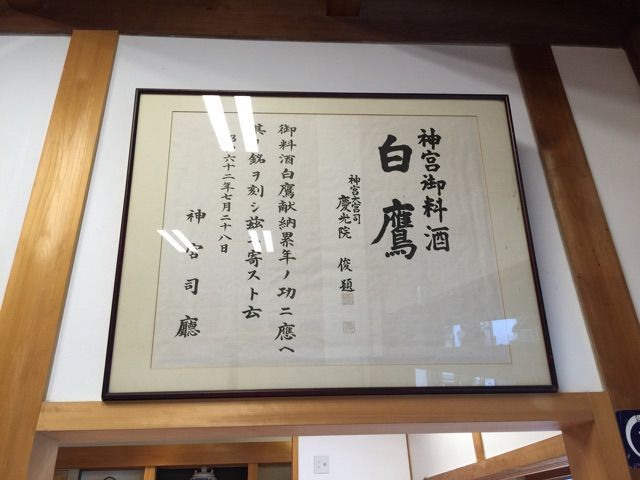 神宮御料酒
白鷹
神宮大宮司
慶光院 俊題
御料酒白鷹献納累年ノ功ニ應ヘ
其ノ銘ヲ刻シ茲ニ寄スト云
昭和六十二年七月二十八日
神宮司廳